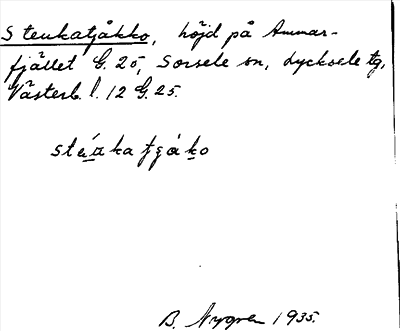 Steukatjåkko, höjd på Ammar-
fjället G. 25, Sorsele sn, Lycksele tg,
Västerb. l. 12 G. 25.
B. Nygren 1935.